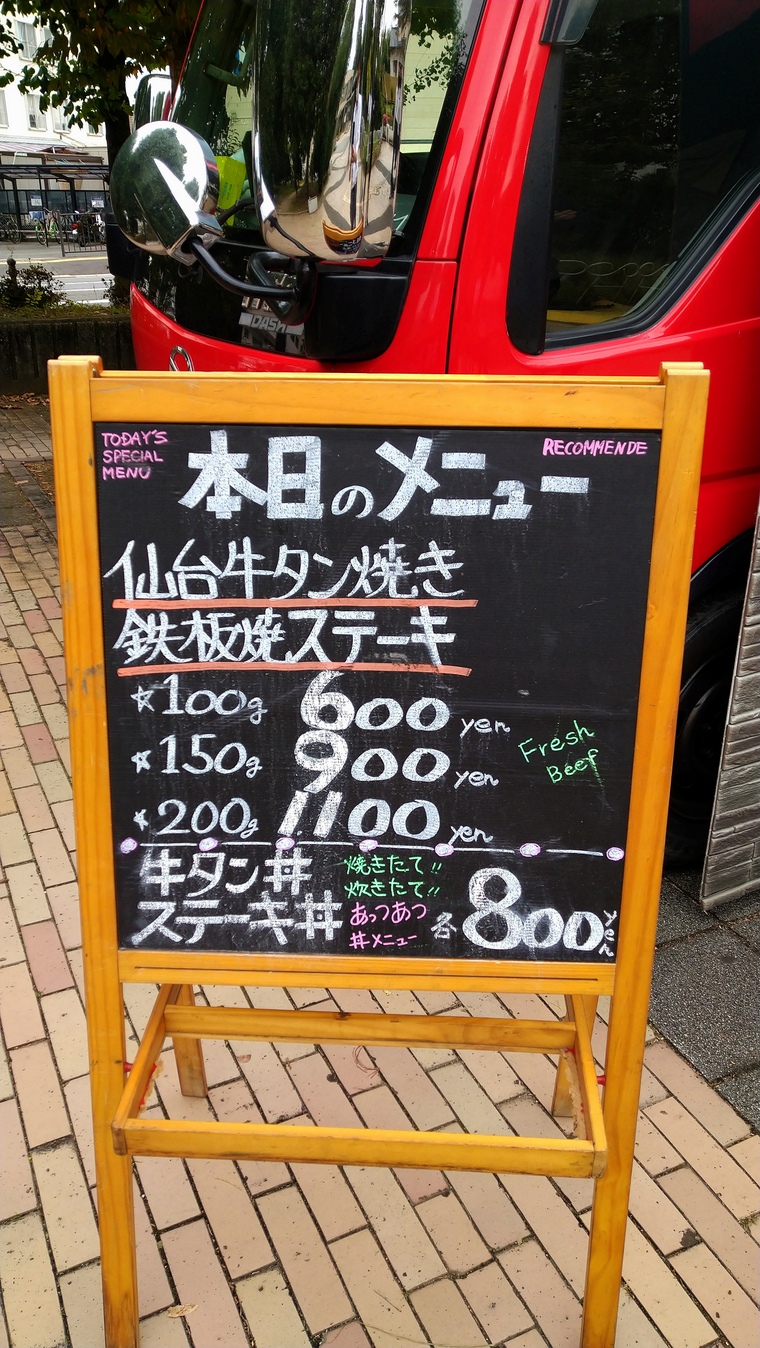 TODAY'S
SPECIAL
MENU
本日のメニュー
RECOMMENDE
仙台牛タン焼き
鉄板焼ステーキ
☆100g 600 yen
☆150g 900 yen
☆200g 1.100 yen
Fresh
Beef
牛タン丼
ステーキ丼
焼きたて!!
炊きたて!!
あっつあつ
丼メニュー
各800yen
DASH